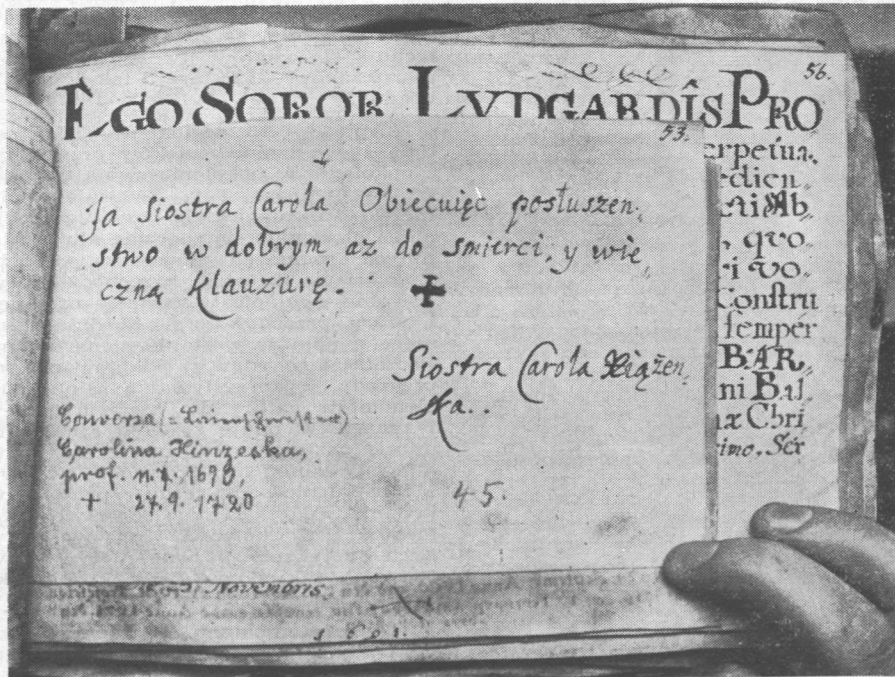 56.
EGO SOROR LVDGARDIS PRO
erpetua,
edicn,
ctiẽ Ab,
quo,
ri vo,
Constru
semper
BAR,
ni Bal,
æ Chri
rimo. Ser
53.
+
Ja Siostra Carola Obiecuięc posłuszen,
stwo w dobrym, az do smierci, y wie,
czną klauzurę. +
Siostra Carola Xiążen,
ska..
Conversa (= Laienschwester)
Carolina Xinzeska,
prof. n. 1690,
+ 27.9.1720
45.
Novembris
1691.